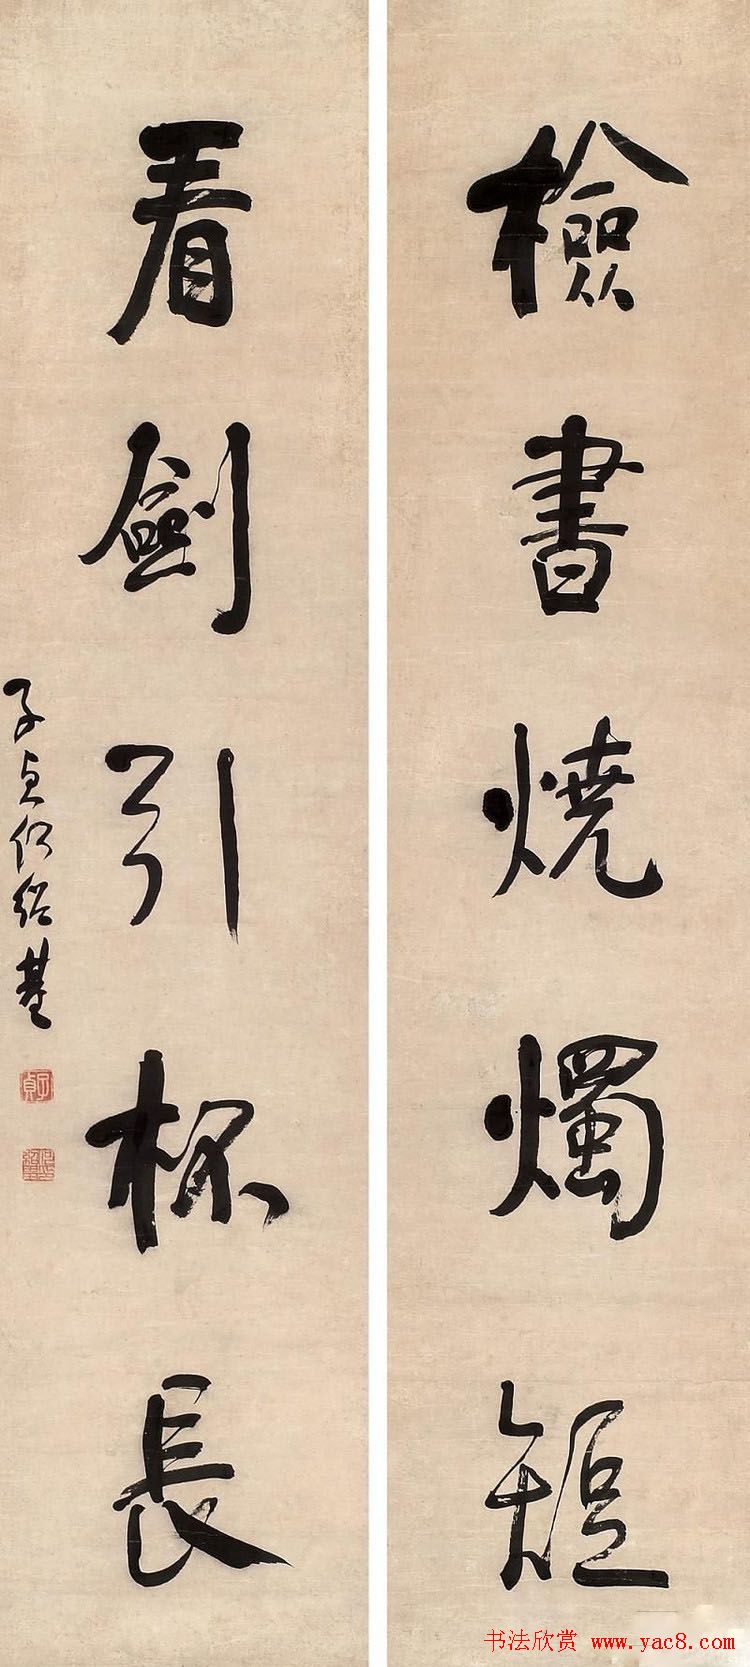 檢書燒燭短
看劍引杯長
子貞何紹基
子貞
书法欣赏 www.yac8.com